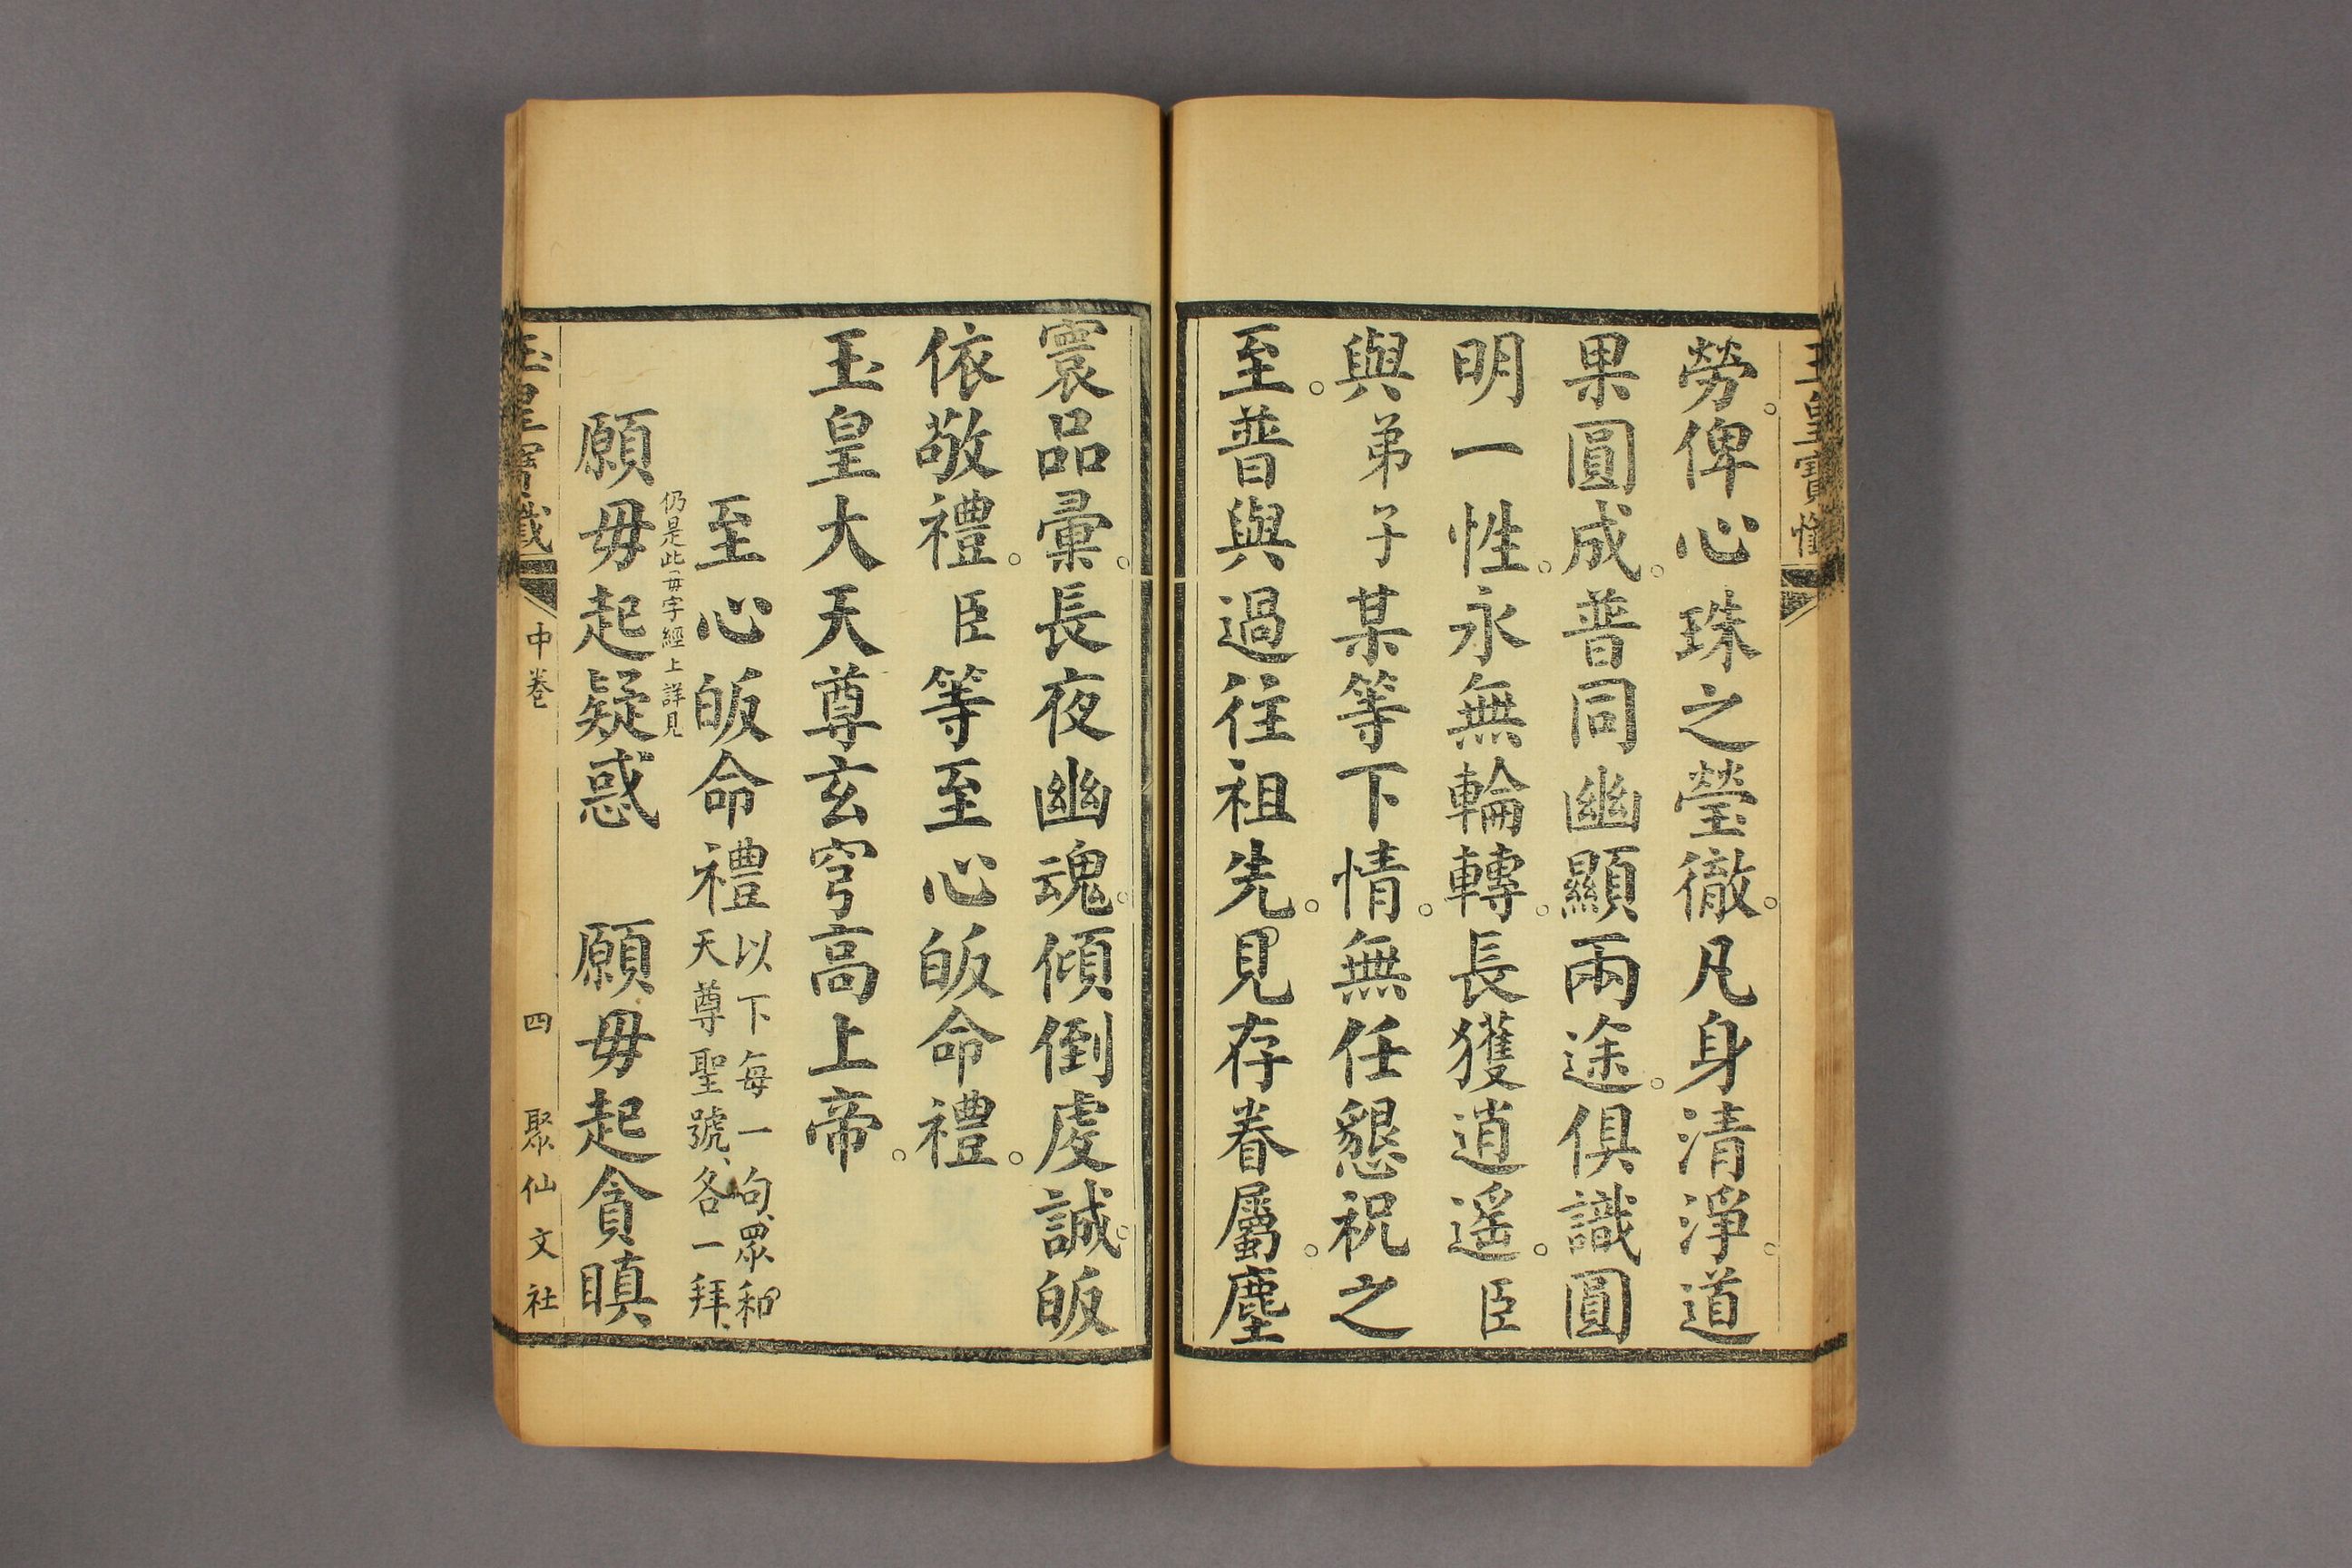 玉皇寶懺
勞。俾心珠之瑩徹。凡身清淨。道
果圓成。普同幽顯兩途。俱識圓
明一性。永無輪轉。長獲逍遙。臣
與弟子某等下情。無任懇祝之
至。普與過往祖先。見存眷屬。塵
寰品彙。長夜幽魂。傾倒虔誠。皈
依敬禮。臣等至心皈命禮。
玉皇大天尊玄穹高上帝。
至心皈命禮
以下每一句、眾和
天尊聖號、各一拜、
仍是此毋字經上詳見
願毋起疑惑　願毋起貪瞋
玉皇寶懺　中卷　四　聚仙文社